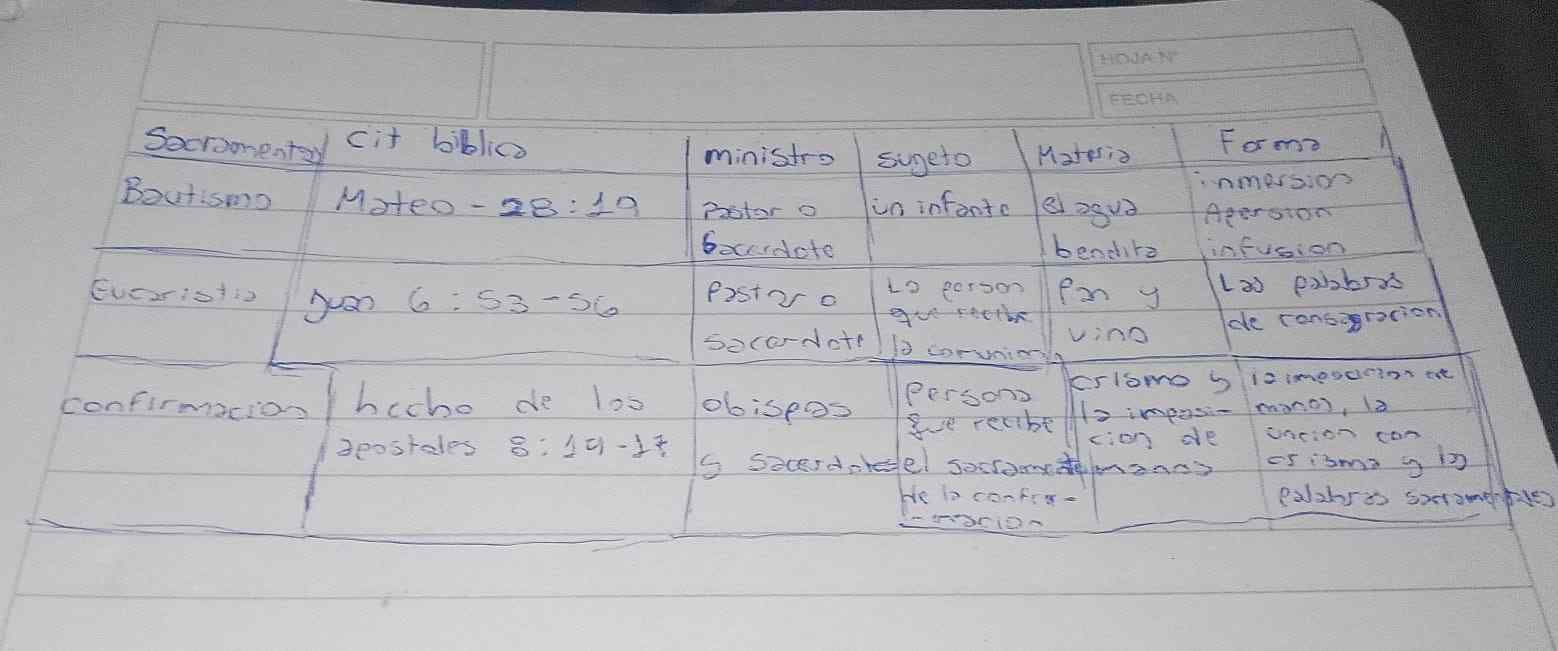 HOJA N°
FECHA
Sacramentos cit biblica ministro sugeto Materia Forma
Bautismo Mateo - 28:19 Pastor o un infante el agua inmersion
Sacerdote bendita Apersion
infusion
Eucaristia Juan 6:53-56 Pastor o La person Pan y Las palabras
sacardote que recibe vino de consagracion
la comunion
confirmacion hecho de los obispos Persona crismo y la imposicion de
apostoles 8:14-17 y sacerdotes que recibe la imposi- manos, la
el sacramento cion de uncion con
de la confir- manos crisma y las
macion palabras sacramentales